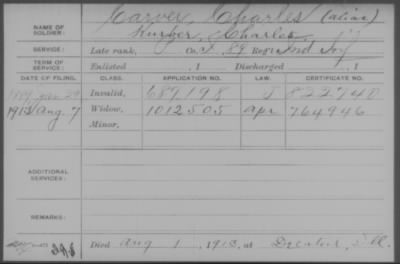 NAME OF SOLDIER: Carver, Charles (alias)
Kurger, Charles
SERVICE: Late rank, Regt Ind Inf
TERM OF SERVICE: Enlisted , 1 Discharged , 1
DATE OF FILING. CLASS. APPLICATION NO. LAW. CERTIFICATE NO.
Invalid, 689198 822740
1913 Aug. 7 Widow, 1012505 Apr 764946
Minor,
ADDITIONAL SERVICES:
REMARKS:
Died Aug 1, 1913, at Decatur, Ill.